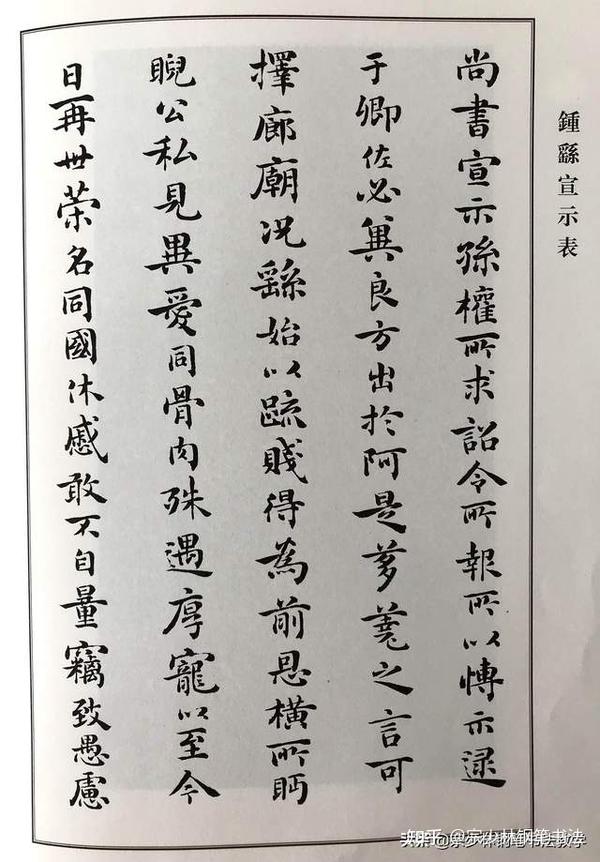 鍾繇宣示表
尚書宣示孫權所求詔令所報所以博示逮
于卿佐必冀良方出於阿是芻蕘之言可
擇廊廟況繇始以疏賤得為前恩橫所眄
睨公私見異愛同骨肉殊遇厚寵以至今
日再世榮名同國休慼敢不自量竊致愚慮
知乎 @宗少林钢笔书法
头条 @宗少林钢笔书法教学